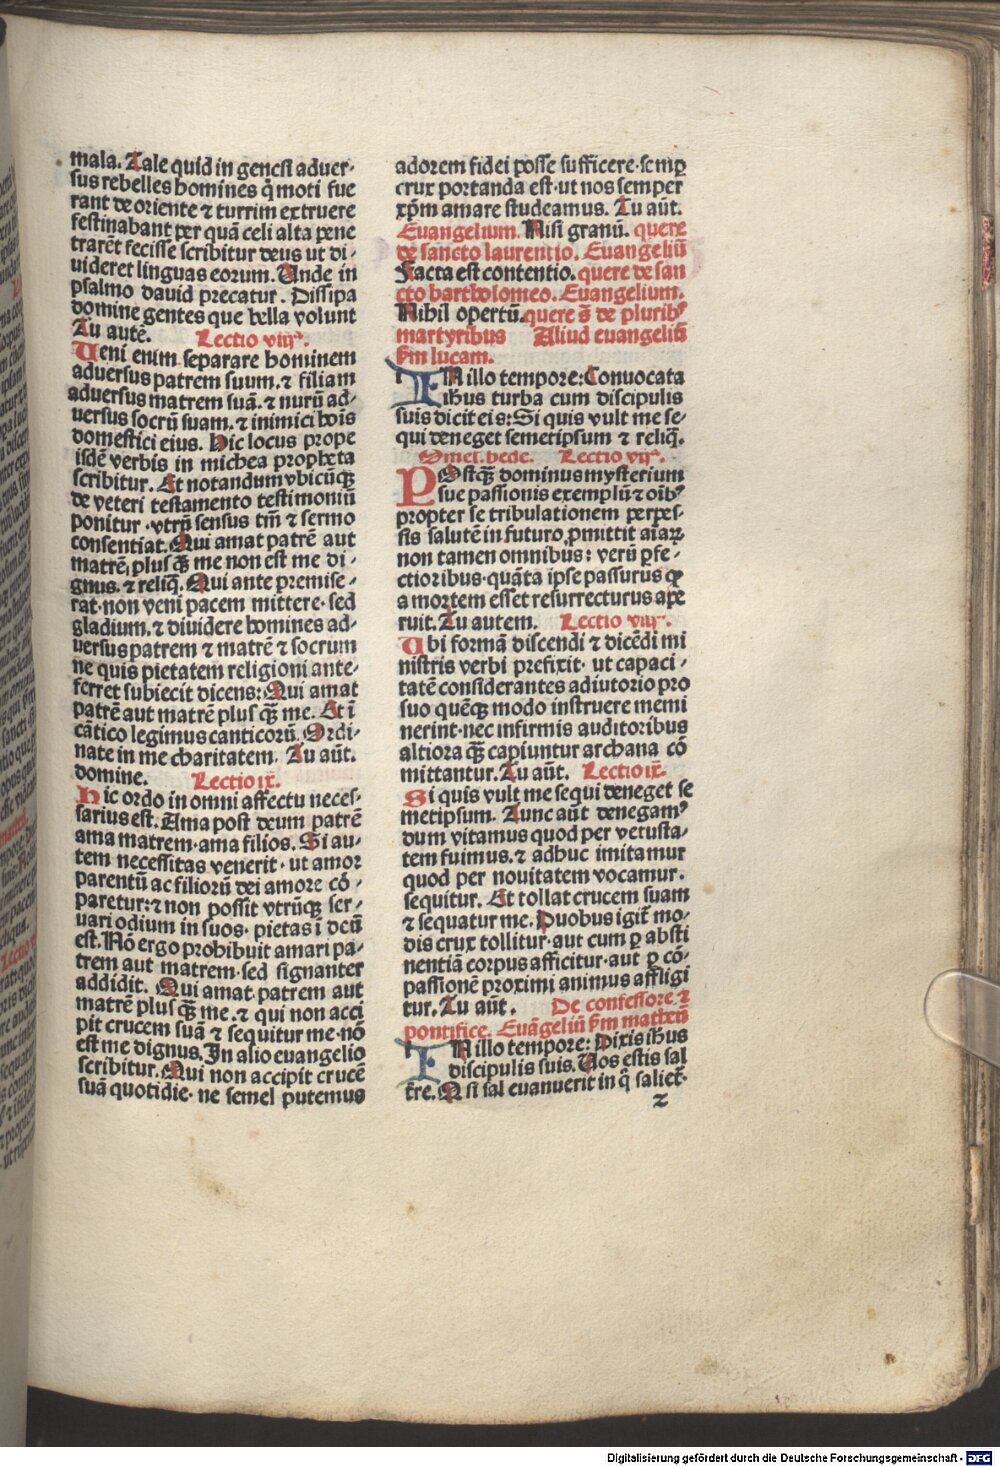 mala. Tale quid in genesi aduer-
sus rebelles homines q̄ moti fue
rant de oriente ⁊ turrim extruere
festinabant per quā celi alta pene
trarēt fecisse scribitur deus ut di-
uideret linguas eorum. Unde in
psalmo dauid precatur. Dissipa
domine gentes que bella volunt
Tu autē. Lectio viij.
Ueni enim separare hominem
aduersus patrem suum. ⁊ filiam
aduersus matrem suā. ⁊ nurū ad-
uersus socrū suam. ⁊ inimici hoīs
domestici eius. Hic locus prope
isdē verbis in michea propheta
scribitur. Et notandum vbicūqꝫ
de veteri testamento testimoniū
ponitur. vtrū sensus tm̄ ⁊ sermo
consentiat. Qui amat patrē aut
matrē, plus qꝫ me non est me di-
gnus. ⁊ reliq̄. Qui ante premise-
rat. non veni pacem mittere. sed
gladium. ⁊ diuidere homines ad-
uersus patrem ⁊ matrē ⁊ socrum
ne quis pietatem religioni ante-
ferret subiecit dicens: Qui amat
patrē aut matrē plus qꝫ me. Et ī
cātico legimus canticorū. Ordi-
nate in me charitatem. Tu aūt.
domine. Lectio ix.
Hic ordo in omni affectu neces-
sarius est. Ama post deum patrē
ama matrem. ama filios. Si au-
tem necessitas venerit. ut amor
parentū ac filiorū dei amore cō-
paretur: ⁊ non possit vtrūqꝫ ser-
uari odium in suos. pietas ī deū
est. Nō ergo prohibuit amari pa-
trem aut matrem. sed signanter
addidit. Qui amat patrem aut
matrē plus qꝫ me. ⁊ qui non acci
pit crucem suā ⁊ sequitur me. nō
est me dignus. In alio euangelio
scribitur. Qui non accipit crucē
suā quotidie. ne semel putemus
adorem fidei posse sufficere. semꝑ
crux portanda est. ut nos semper
xp̄m amare studeamus. Tu aūt.
Euangelium. Nisi granū. quere
de sancto laurentio. Euangeliū
Facta est contentio. quere de san
cto bartholomeo. Euangelium.
Nihil opertū. quere ē de plurib⁹
martyribus Aliud euangeliū
ẜm lucam.
IN illo tempore: Conuocata
ihus turba cum discipulis
suis dicit eis: Si quis vult me se-
qui deneget semetipsum ⁊ reliq̄.
Omel. bede. Lectio vij.
POstqꝫ dominus mysterium
sue passionis exemplū ⁊ oīb⁹
propter se tribulationem perpes-
sis salutē in futuro ꝓmittit aīaꝝ
non tamen omnibus: verū ꝑfe-
ctioribus. quāta ipse passurus ꝙ
a mortem esset resurrecturus ape
ruit. Tu autem. Lectio viij.
Ubi formā discendi ⁊ dicēdi mi
nistris verbi prefixit. ut capaci-
tatē considerantes adiutorio pro
suo quēqꝫ modo instruere memi
nerint. nec infirmis auditoribus
altiora qꝫ capiuntur archana cō
mittantur. Tu aūt. Lectio ix.
Si quis vult me sequi deneget se
metipsum. Tunc aūt denegam⁹
dum vitamus quod per vetusta-
tem fuimus. ⁊ adhuc imitamur
quod per nouitatem vocamur.
sequitur. Et tollat crucem suam
⁊ sequatur me. Duobus igit̄ mo-
dis crux tollitur. aut cum ꝑ absti
nentiā corpus afficitur. aut ꝑ cō-
passionē proximi animus affligi
tur. Tu aūt. De confessore ⁊
pontifice. Euāgeliū ẜm matheū
IN illo tempore: Dixis ihus
discipulis suis. Uos estis sal
t̄re. Q si sal euanuerit in q̄ saliet̄.
z
Digitalisierung gefördert durch die Deutsche Forschungsgemeinschaft - DFG